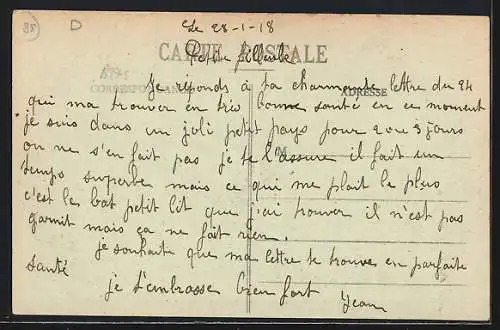 88 D Le 28-1-18
CARTE POSTALE
Petite filleule
CORRESPONDANCE ADRESSE
Je réponds à ta charmante lettre du 24
qui ma trouver en très bonne santé en ce moment
je suis dans un joli petit pays pour 2 ou 3 jours
on ne s'en fait pas je te l'assure il fait un
temps superbe mais ce qui me plait le plus
c'est le bat petit lit que j'ai trouver il n'est pas
garnit mais ça ne fait rien.
je souhaite que ma lettre te trouve en parfaite
santé
je t'embrasse bien fort Jean